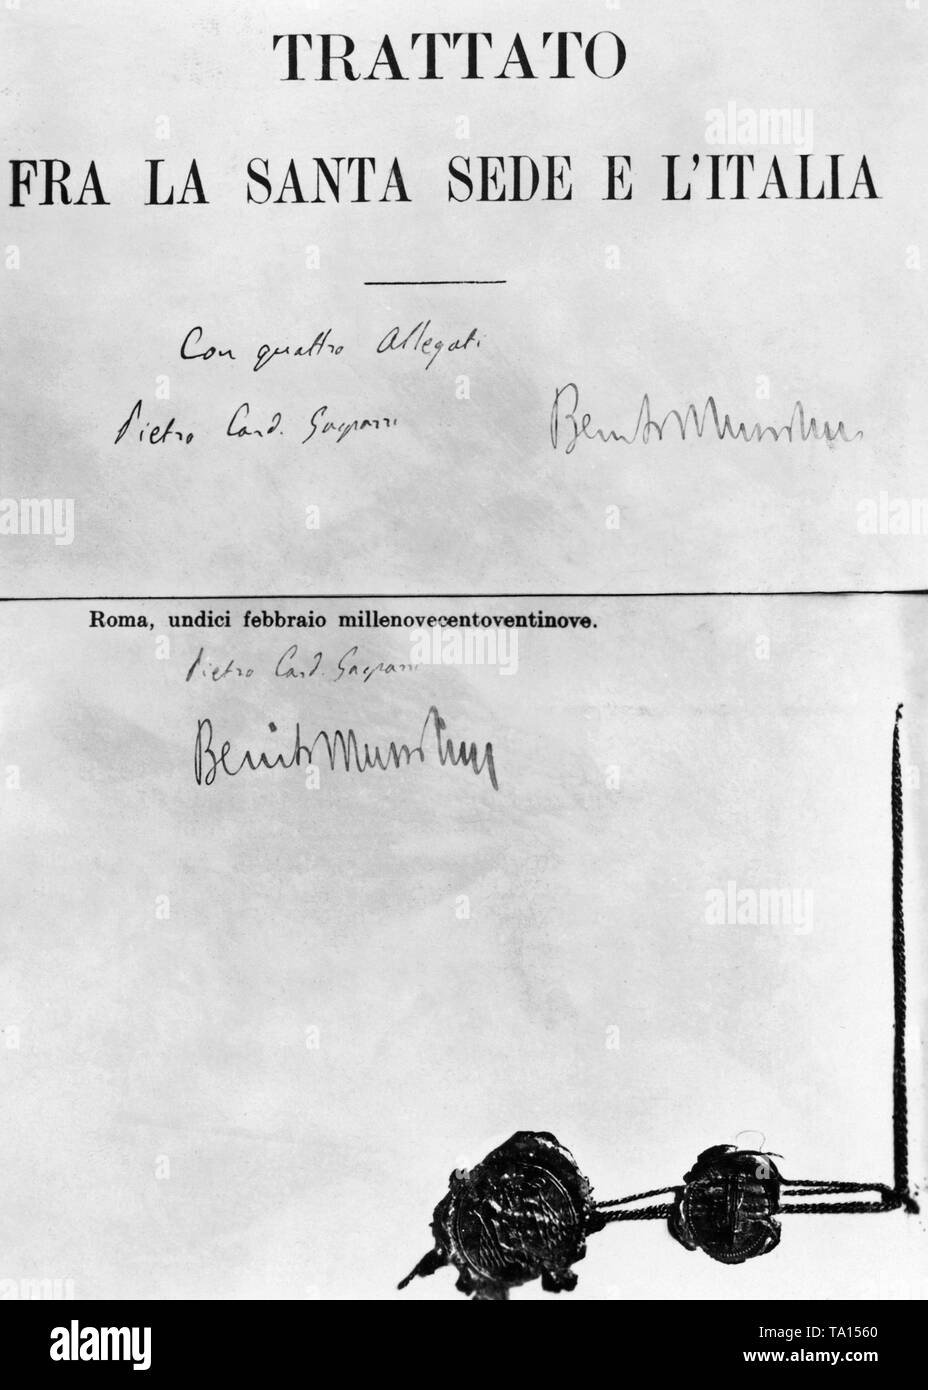 TRATTATO
FRA LA SANTA SEDE E L'ITALIA
Con quattro Allegati
Pietro Card. Gasparri
Benito Mussolini
Roma, undici febbraio millenovecentoventinove.
Pietro Card. Gasparri
Benito Mussolini
alamy
alamy
alamy
Image ID: TA1560
www.alamy.com